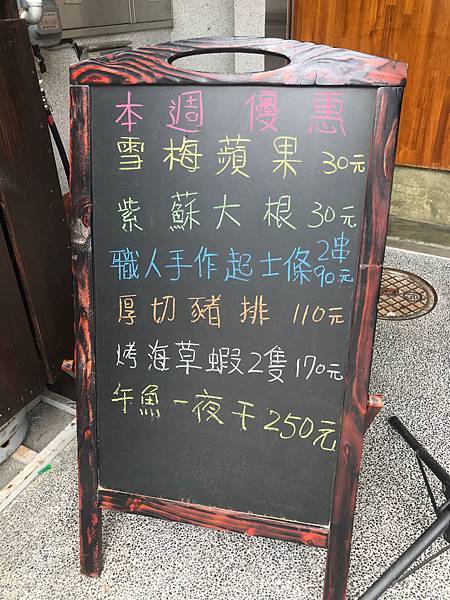 本週優惠
雪梅蘋果 30元
紫蘇大根 30元
職人手作起士條 2串90元
厚切豬排 110元
烤海草蝦2隻170元
午魚一夜干250元